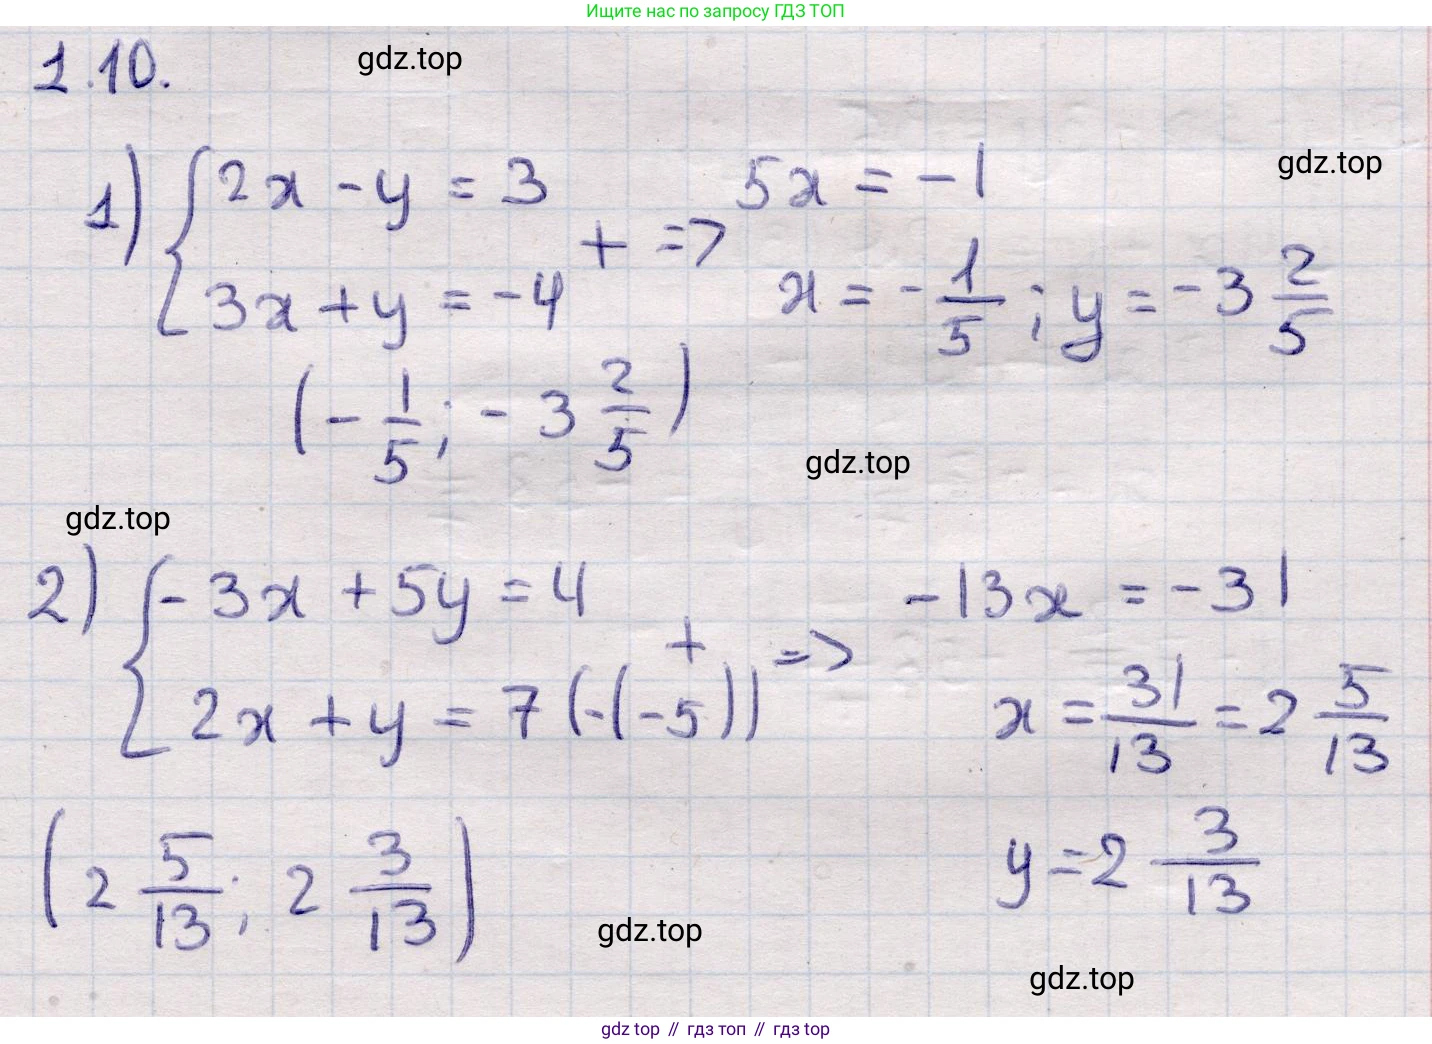 Ищите нас по запросу ГДЗ ТОП
1.10.
gdz.top
1) { 2x - y = 3
3x + y = -4 + => 5x = -1
gdz.top
x = - 1/5 ; y = -3 2/5
(- 1/5 ; -3 2/5)
gdz.top
gdz.top
2) { -3x + 5y = 4
2x + y = 7 (·(-5)) + => -13x = -31
x = 31/13 = 2 5/13
y = 2 3/13
(2 5/13 ; 2 3/13)
gdz.top
gdz.top
gdz top // гдз топ // гдз top